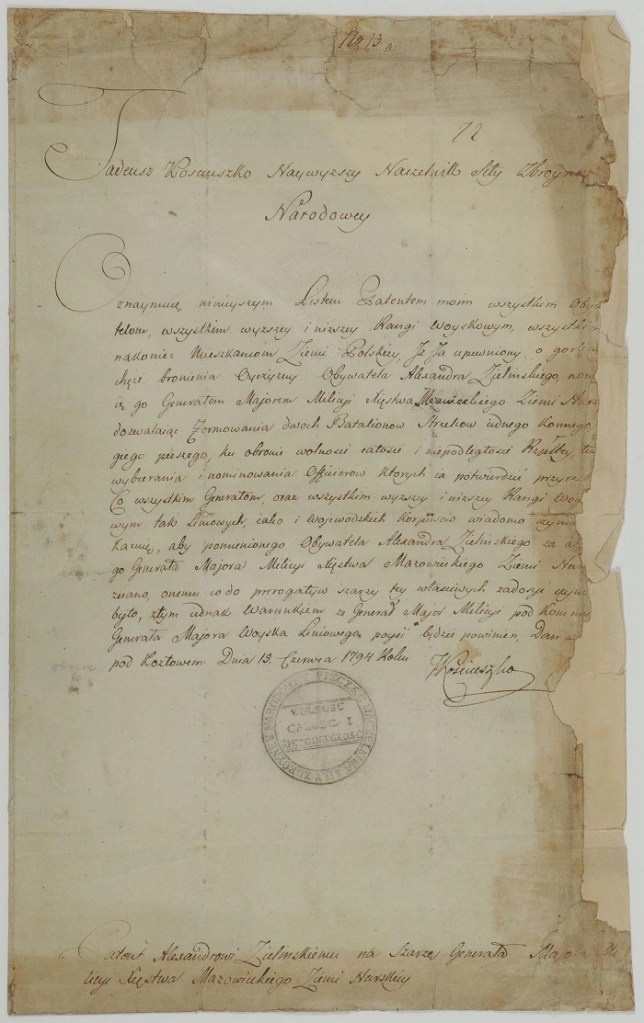 No 13 a
72
Tadeusz Kosciuszko Naywyzszy Naczelnik Siły Zbroyney
Narodowey
Oznaymuię ninieyszym Listem Patentem moim wszystkim Obywa
telom, wszystkim wyzszey i nizszey Rangi Woyskowym, wszystkim
nakoniec Mieszkancom Ziemi Polskiey, Że Ja upewniony o gorliwey
chęci bronienia Oyczyzny Obywatela Alexandra Zielinskiego
ię go Generałem Majorem Milicyi Xięstwa Mazowieckiego Ziemi Nurs
dozwalaiąc Formowania dwoch Batalionow Strzelcow iednego konnego
giego pieszego, ku obronie wolnosci całosci i niepodległosci Rzpltey
wybierania i nominowania Officierow ktorych ia potwierdzić przyrze
Co wszystkim Generałom, oraz wszystkim wyzszey i nizszey Rangi Woy
wym tak Liniowych, iako i Woiewodzkich Korpusow wiadomo czyniąc
kazuię, aby pomienionego Obywatela Alexandra Zielinskiego za
go Generała Majora Milicyi Xięstwa Mazowieckiego Ziemi Nur
znano, onemu co do prerogatyw szarzy tey własciwych zadosyć czyn
było, z tym iednak Warunkiem ze Generał Major Milicyi pod Kommend
Generała Majora Woyska Liniowego, poyść będzie powinien, Dan w
pod Kozłowem Dnia 13. Czerwca 1794 Roku
TKościuszko
PIECZĘĆ NACZELNIKA SIŁY ZBROYNEY NARODOWEY
WOLNOSC
CAŁOSC I
NIEPODLEGŁOSC
Patent Alexandrowi Zielinskiemu na Szarzę Generała Majora Mi
licyi Xięstwa Mazowieckiego Ziemi Nurskiey